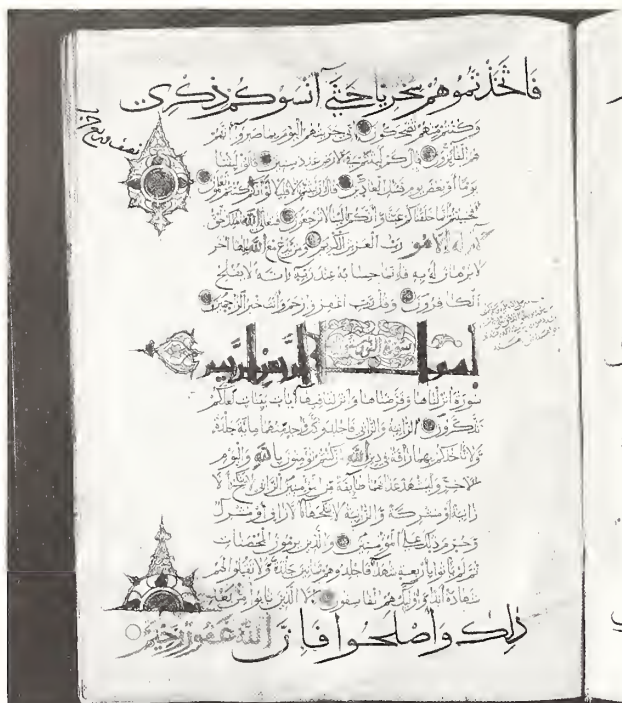 فَاتَّخَذْتُمُوهُمْ سِخْرِيًّا حَتَّى أَنْسَوْكُمْ ذِكْرِي
وكنتم منهم تضحكون إني جزيتهم اليوم بما صبروا أنهم
هم الفائزون قال كم لبثتم في الأرض عدد سنين قالوا لبثنا
يوما أو بعض يوم فسئل العادين قال إن لبثتم إلا قليلا لو أنكم كنتم تعلمون
أفحسبتم أنما خلقناكم عبثا وأنكم إلينا لا ترجعون فتعالى الله الملك الحق
لا إله إلا هو رب العرش الكريم ومن يدع مع الله إلها آخر
لا برهان له به فإنما حسابه عند ربه إنه لا يفلح
الكافرون وقل رب اغفر وارحم وأنت خير الراحمين
سورة النور
بسم الله الرحمن الرحيم
سورة أنزلناها وفرضناها وأنزلنا فيها آيات بينات لعلكم
تذكرون الزانية والزاني فاجلدوا كل واحد منهما مائة جلدة
ولا تأخذكم بهما رأفة في دين الله إن كنتم تؤمنون بالله واليوم
الآخر وليشهد عذابهما طائفة من المؤمنين الزاني لا ينكح إلا
زانية أو مشركة والزانية لا ينكحها إلا زان أو مشرك
وحرم ذلك على المؤمنين والذين يرمون المحصنات
ثم لم يأتوا بأربعة شهداء فاجلدوهم ثمانين جلدة ولا تقبلوا لهم
شهادة أبدا وأولئك هم الفاسقون إلا الذين تابوا من بعد
ذلك وأصلحوا فإن الله غفور رحيم